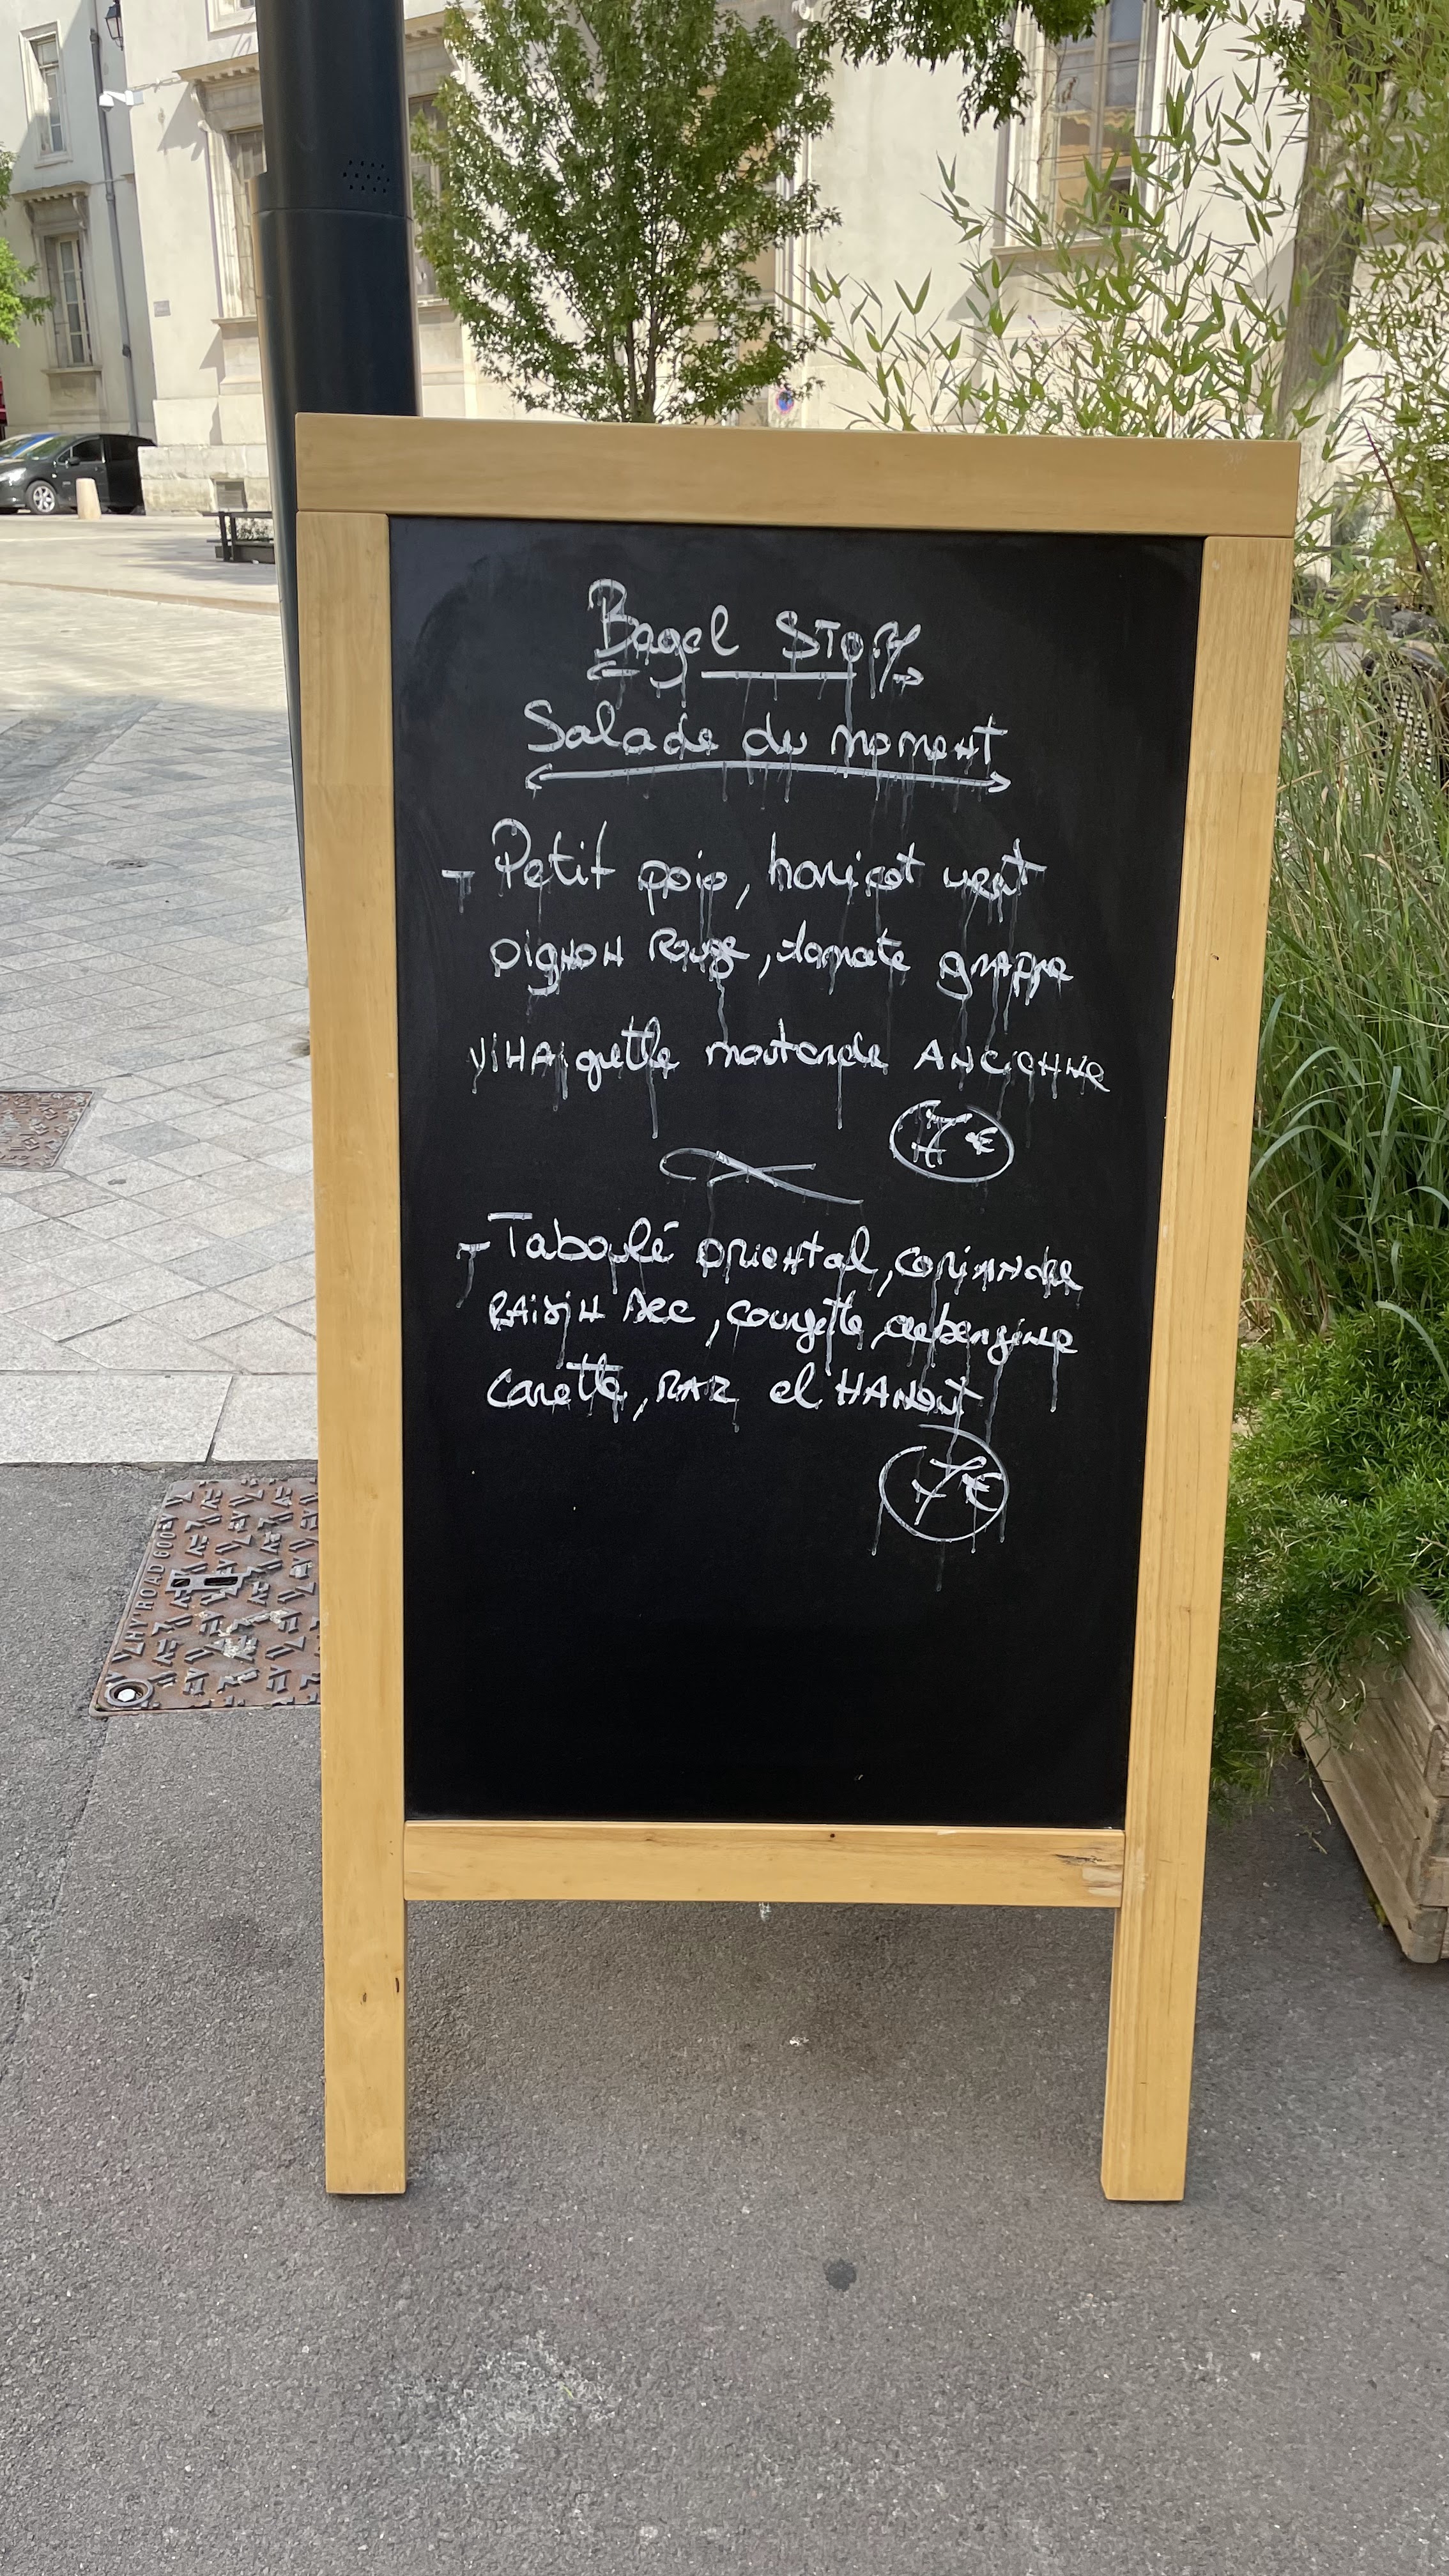 Bagel STORY
Salade du moment
- Petit pois, haricot vert
oignon Rouge, tomate grappe
VINAigrette moutarde ANCienne
7€
- Taboulé oriental, coriandre
RAisin sec, courgette, aubergine
Carotte, RAZ el HANOUT
7€
HY'ROAD 600